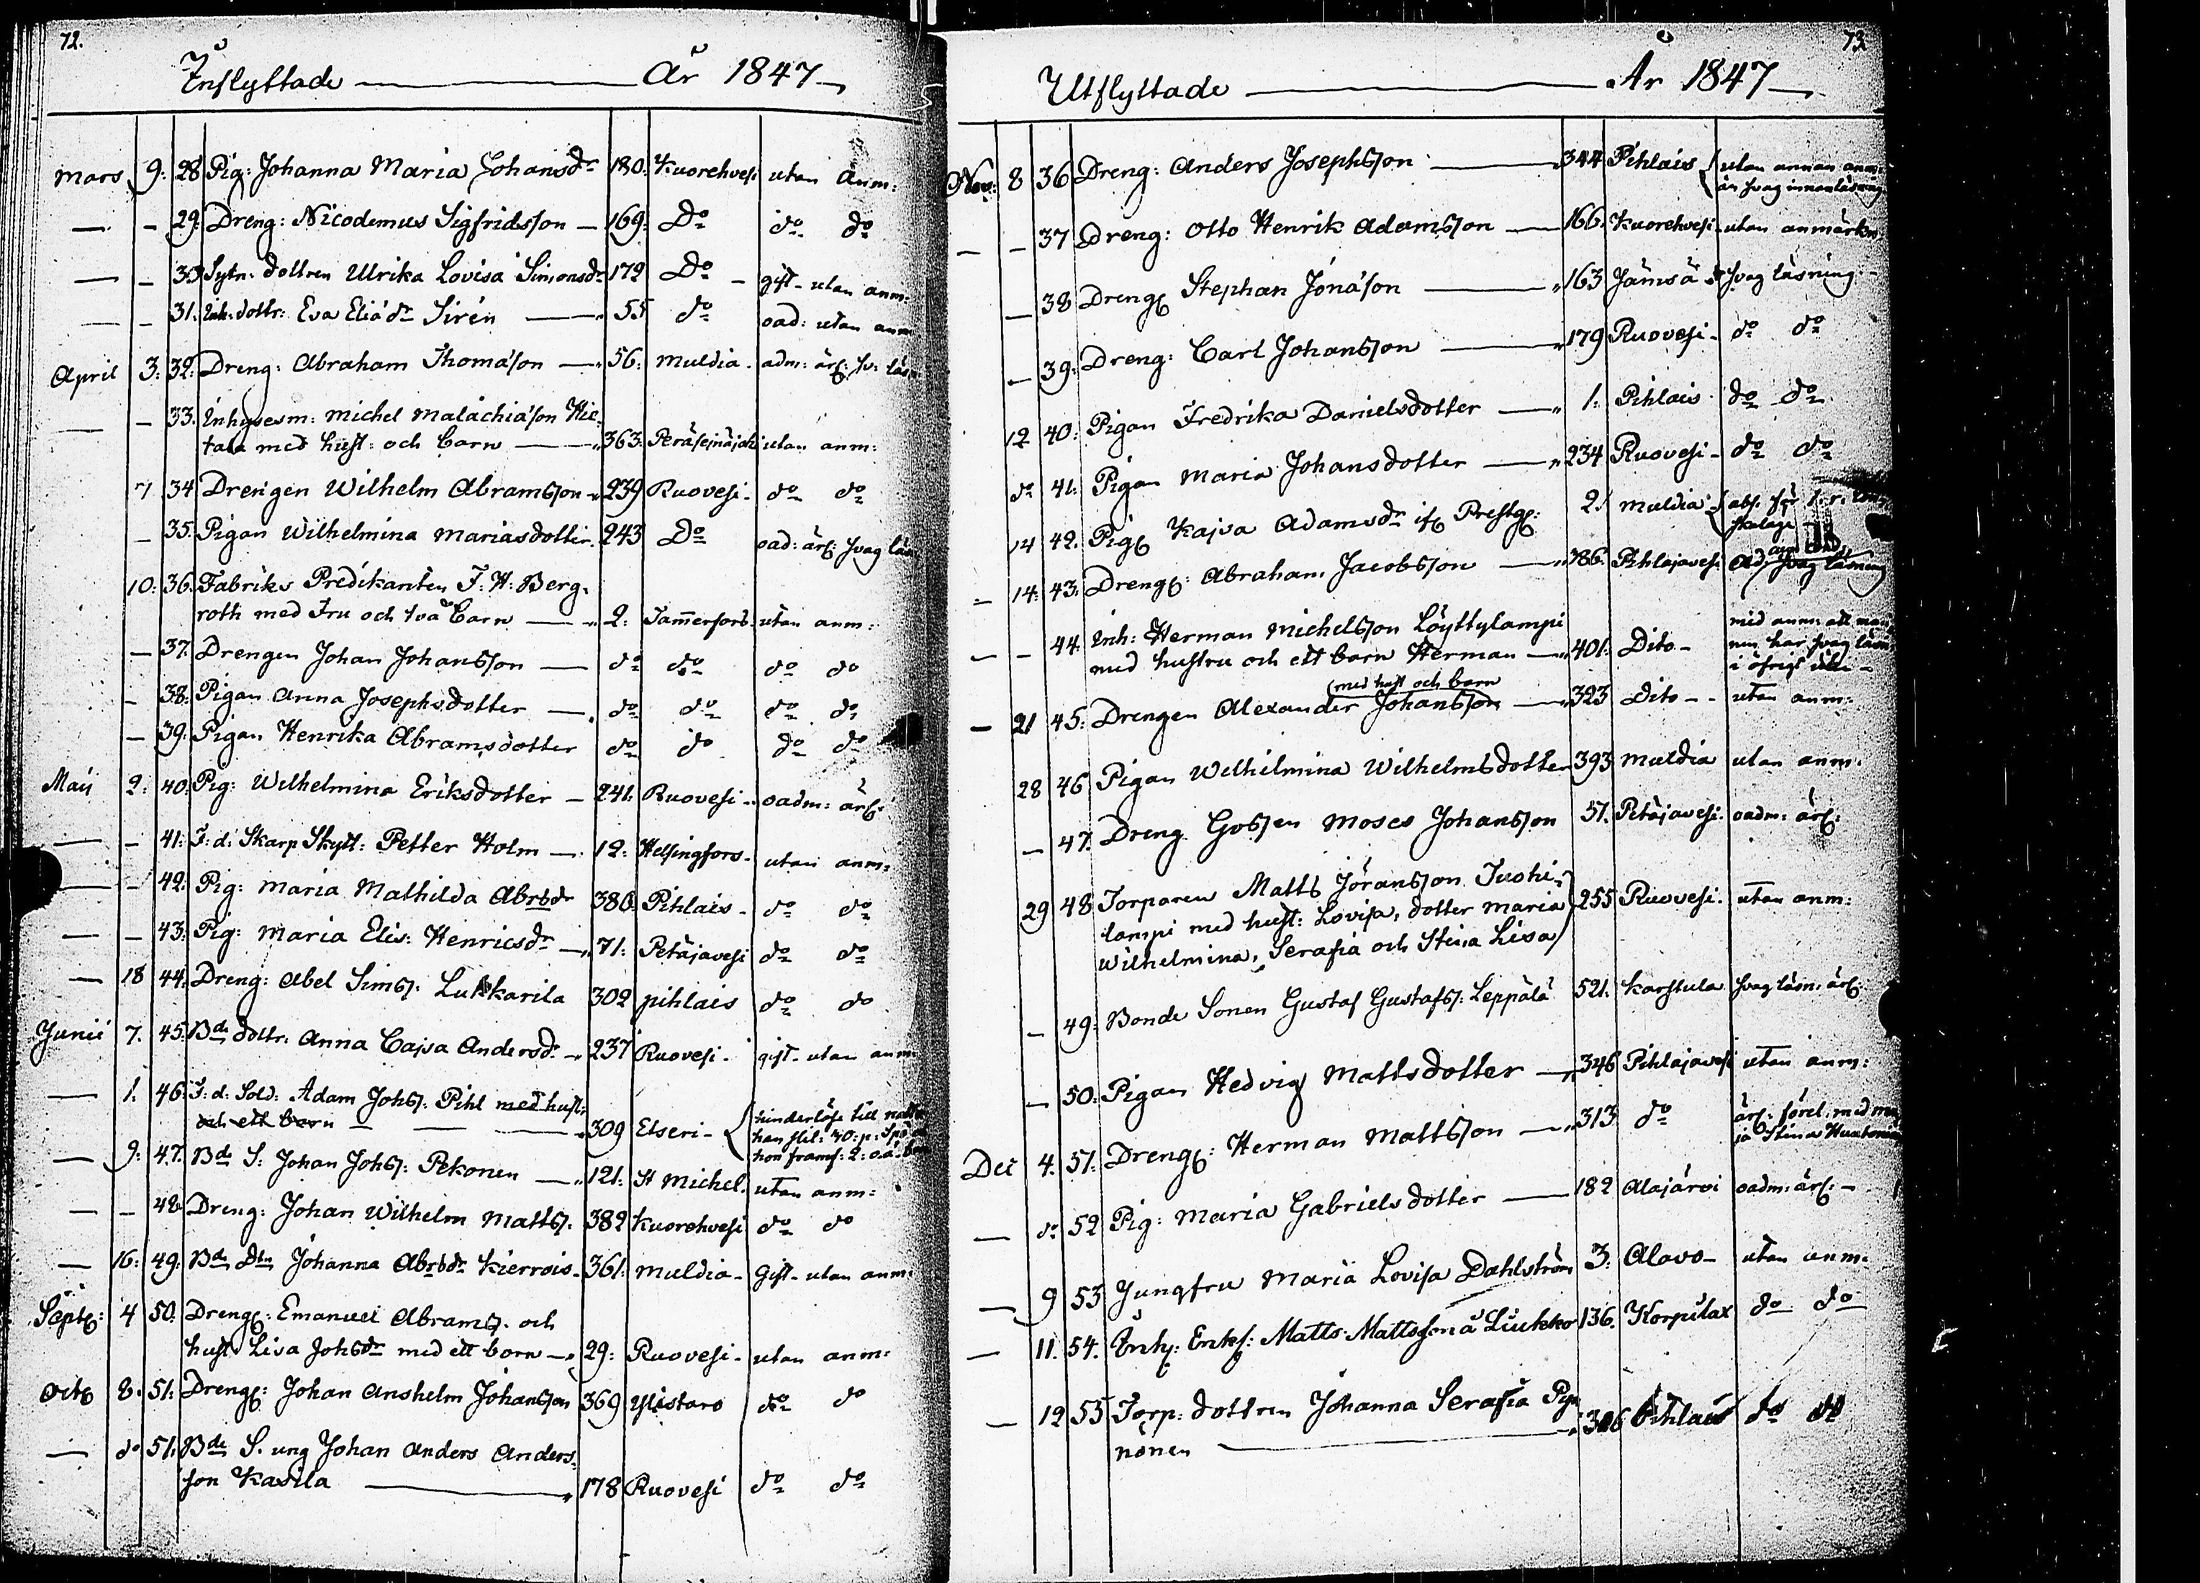 72.
Inflyttade — År 1847
Mars 9: 28 Pig: Johanna Maria Johansdr 180: Kuorehvesi utan anm:
— – 29: Dreng: Nicodemus Sigfridsson — 169: Do do do
— – 30 Sytn: dottren Ulrika Lovisa Simonsdr 172 Do – gift – utan anm:
— – 31. Inh: dottr: Eva Eliädr Sirén — 55 do oad: utan anm
April 3: 32: Dreng: Abraham Thomäson — 56: Muldia – adm: ärf: sv: läsn
— – 33. Inhysesm: Michel Malachiäson Hie-
tala med hust: och barn — 363: Peräsejnäjoki utan anm:
7 34 Drengen Wilhelm Abramsson — 239 Ruovesi – do do
– 35. Pigan Wilhelmina Mariasdotter. 243 Do oad: ärf: svag läs
10: 36. Fabriks Predikanten F: H: Berg-
roth med Fru och två barn — 2: Tammerfors – utan anm:
– 37. Drengen Johan Johansson — do do do do
– 38: Pigan Anna Josephsdotter — do do do do
– 39: Pigan Henrika Abramsdotter do do do do
Maij 2: 40: Pig: Wilhelmina Eriksdotter — 241: Ruovesi – oadm: ärf:
— – 41: F: d: Skarp Skytt: Petter Holm — 12: Helsingfors – utan anm:
— – 42: Pig: Maria Mathilda Abrsdr 380: Pihlais – do do
— – 43: Pig: Maria Elis: Henricsdr — 71: Petäjavesi do do
— 18 44: Dreng: Abel Sims: Lukkarila 302 pihlais do do
Junii 7. 45: Bde dottr: Anna Cajsa Andersdr — 237 Ruovesi – gift – utan anm
— 1. 46: F: d: Sold: Adam Johss: Pihl med hust:
och ett barn — 309 Etseri – { hinderlöse till
— 9: 47. Bde S: Johan Johss: Pekonen — 121: St Michel. utan anm:
— – 48 Dreng: Johan Wilhelm Mattss: 382 Kuorehvesi do do
— 16: 49: Bde Dtn Johanna Abrsdr Kierrois – 361: Muldia – Gift – utan anm:
Septr: 4 50. Drengr: Emanuel Abrams. och
hust: Lisa Johsdr med ett barn — 29: Ruovesi – utan anm:
Octb 8. 51: Drengr: Johan Anshelm Johansson 369 Ylistaro do do
— do 51: Bde S. ung Johan Anders Anders-
son Kasila — 178 Ruovesi do do
73
Utflyttade — År 1847
Nov: 8 36 Dreng: Anders Josephsson — 344 Pihlais { utan annan anm:
än svag innanläsning
— – 37 Dreng: Otto Henrik Adamsson — 166. Kuorehvesi – utan anmärkn
— 38 Dreng Stephan Jonäson — 163 Jämsä svag läsning: –
— 39: Dreng: Carl Johansson — 179 Ruovesi – do do
12 40: Pigan Fredrika Danielsdotter — 1: Pihlais do do
do 41: Pigan Maria Johansdotter — 234 Ruovesi – do do
14 42. Pig Kajsa Adamsdr 2: Muldia {
— 14: 43: Drengr: Abraham Jacobsson — 786. Pihlajavesi svag läsning
— – 44. Inh: Herman Michelsson Löyttylampi
med hustru och ett barn Herman — 401: Dito –
med anm: att man
nen har svag läsn
(med hust och barn
— 21 45: Drengen Alexander Johansson — 323 Dito – – utan anm:
28 46 Pigan Wilhelmina Wilhelmsdotter 393 Muldia utan anm:
— 47. Dreng Gossen Moses Johansson 51. Petäjavesi. oadm: ärf:
29 48 Torparen Matts Jöransson Juohi-
lampi med hust: Lovisa, dotter Maria
Wilhelmina, Serafia och Stina Lisa) 255 Ruovesi. utan anm:
— 49: Bonde Sonen Gustaf Gustafss: Leppälä 521. Karstula svag läsn: ärf:
— 50: Pigan Hedvig Mattsdotter — 346 Pihlajavesi utan anm:
Dec 4. 51: Drengr: Herman Mattsson — 313 do
— do 52 Pig: Maria Gabrielsdotter — 182 Alajärvi oadm: ärf: –
— 9 53 Jungfru Maria Lovisa Dahlström 3: Alavo – utan anm:
— 11. 54. Inh: Enkf: Matts Mattsson ä Liukko 136. Korpilax do do
— 12 55 Torp: dottren Johanna Serafia Py-
nönen — 306 Pihlais do do